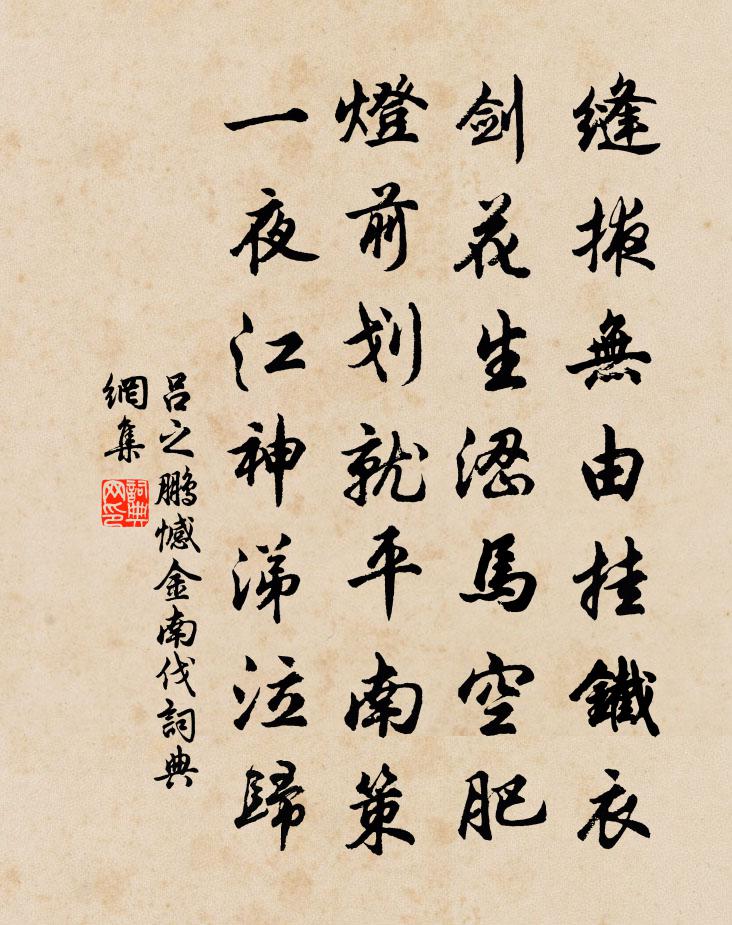 縫掖無由挂鐵衣
剑花生涩馬空肥
燈前划就平南策
一夜江神涕泣歸
吕之鵬憾金南伐詞典
網集
詞典
网印